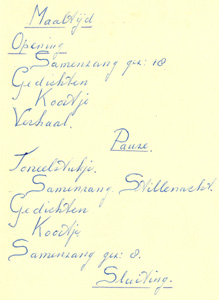 Maaltijd.
Opening
Samenzang gez: 18
Gedichten
Koortje
Verhaal.
Pauze.
Toneelstukje.
Samenzang. Stillenacht.
Gedichten.
Koortje
Samenzang gez: 8.
Sluiting.